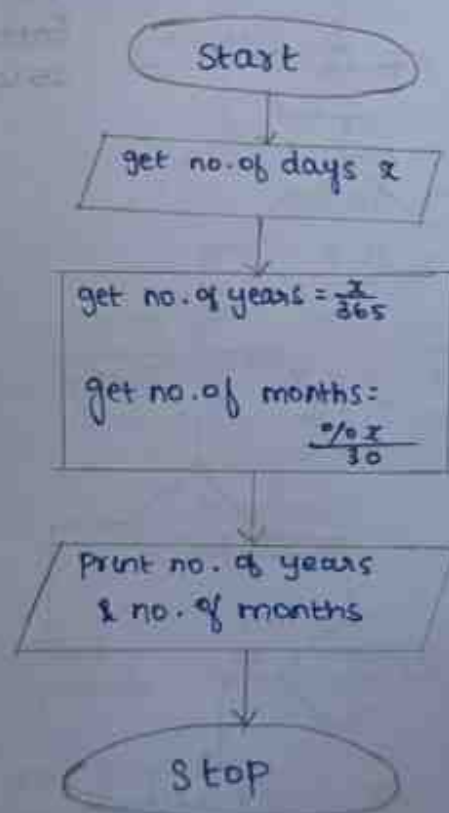 Start
get no. of days x
get no. of years = x/365
get no. of months =
% x
30
Print no. of years
& no. of months
Stop